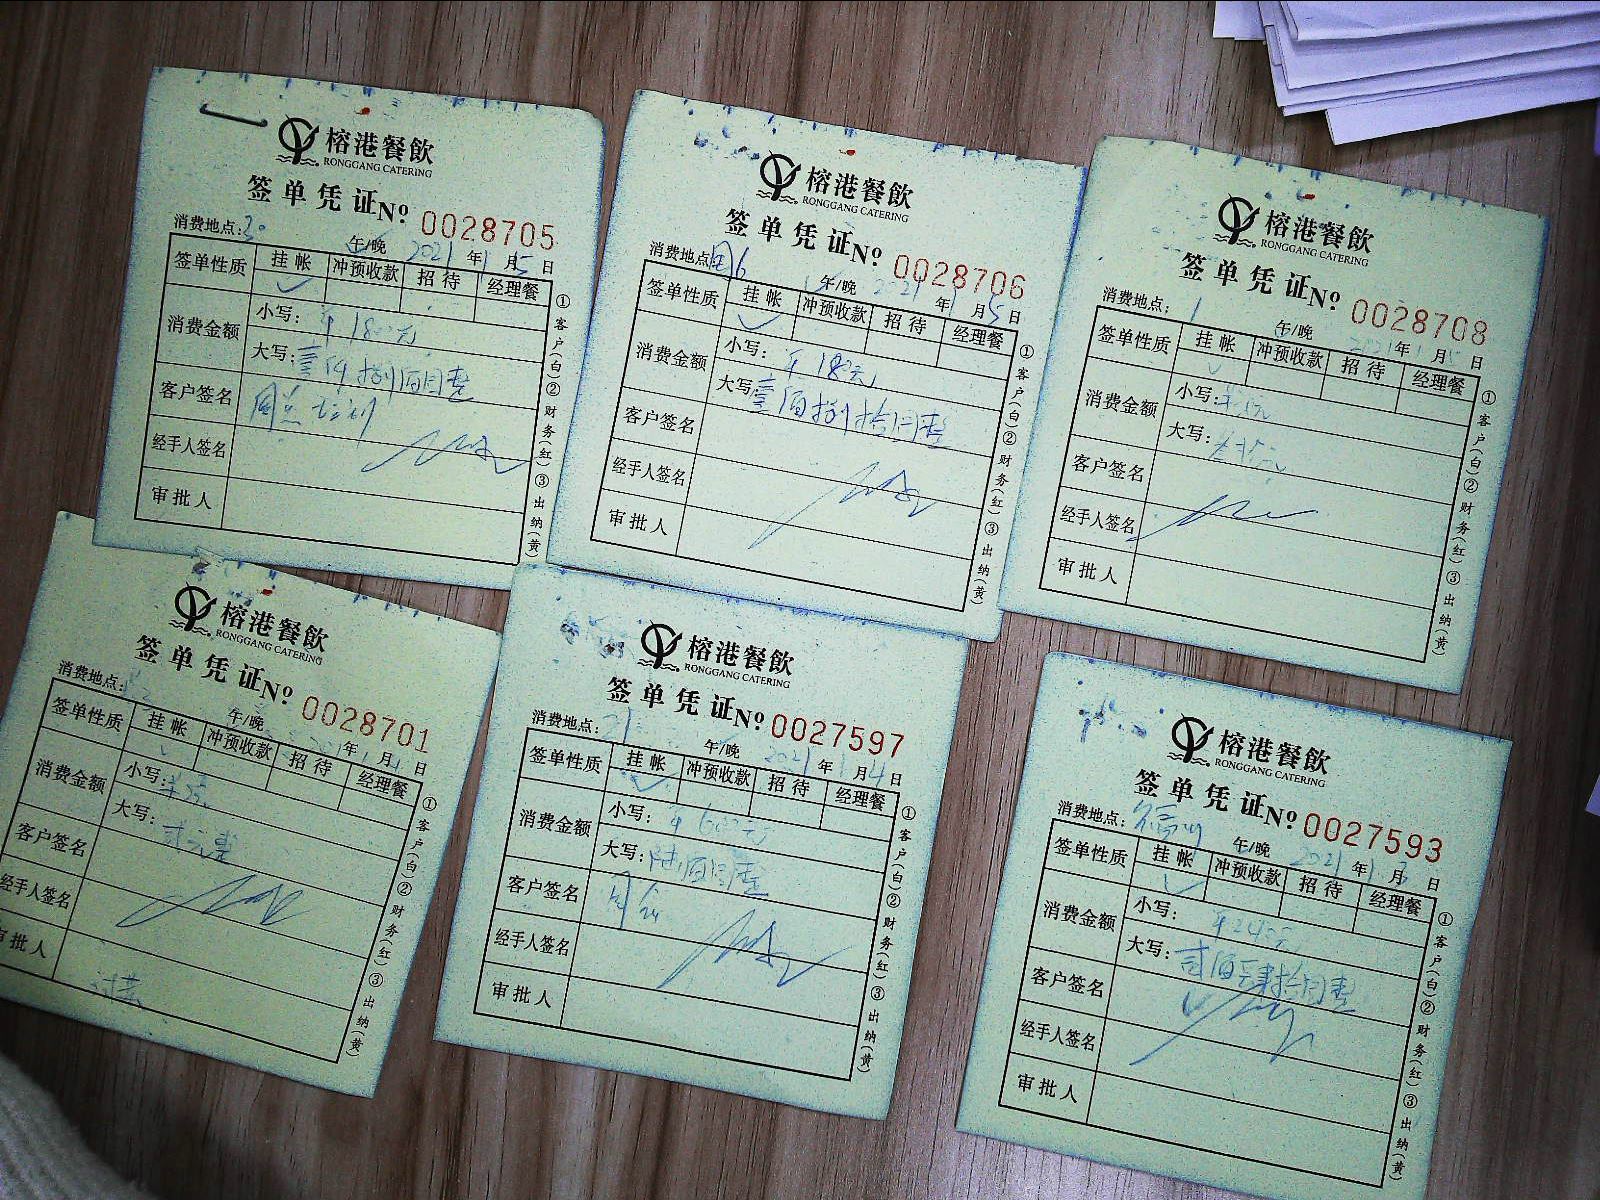 榕港餐飲
RONGGANG CATERING
签单凭证 № 0028705
消费地点: 午/晚 2021年1月5日
签单性质 挂帐 冲预收款 招待 经理餐
消费金额 小写: ¥1800元
大写: 壹仟捌佰圆整
客户签名
经手人签名
审批人
①客户(白)②财务(红)③出纳(黄)
榕港餐飲
RONGGANG CATERING
签单凭证 № 0028706
消费地点: 午/晚 2021年1月5日
签单性质 挂帐 冲预收款 招待 经理餐
消费金额 小写: ¥180元
大写: 壹佰捌拾圆整
客户签名
经手人签名
审批人
①客户(白)②财务(红)③出纳(黄)
榕港餐飲
RONGGANG CATERING
签单凭证 № 0028708
消费地点: 午/晚 2021年1月日
签单性质 挂帐 冲预收款 招待 经理餐
消费金额 小写:
大写:
客户签名
经手人签名
审批人
①客户(白)②财务(红)③出纳(黄)
榕港餐飲
RONGGANG CATERING
签单凭证 № 0028701
消费地点: 午/晚 2021年1月日
签单性质 挂帐 冲预收款 招待 经理餐
消费金额 小写:
大写:
客户签名
经手人签名
审批人
①客户(白)②财务(红)③出纳(黄)
榕港餐飲
RONGGANG CATERING
签单凭证 № 0027597
消费地点: 午/晚 2021年1月4日
签单性质 挂帐 冲预收款 招待 经理餐
消费金额 小写: ¥600元
大写: 陆佰圆整
客户签名
经手人签名
审批人
①客户(白)②财务(红)③出纳(黄)
榕港餐飲
RONGGANG CATERING
签单凭证 № 0027593
消费地点: 午/晚 2021年1月日
签单性质 挂帐 冲预收款 招待 经理餐
消费金额 小写: ¥240元
大写: 贰佰肆拾圆整
客户签名
经手人签名
审批人
①客户(白)②财务(红)③出纳(黄)